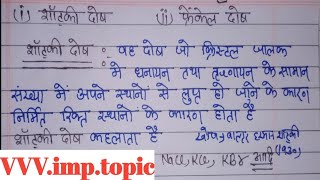 (i) शॉट्की दोष (ii) फ्रेंकेल दोष
शॉट्की दोष : वह दोष जो क्रिस्टल जालक
में धनायन तथा ऋणायन के सामान
संख्या में अपने स्थानों से लुप्त हो जाने के कारण
निर्मित रिक्त स्थानों के कारण होता है
शॉट्की दोष कहलाता है
खोज, वाल्टर शॉट्की
NaCl, KCl, KBr आदि (1930)
VVV.imp.topic